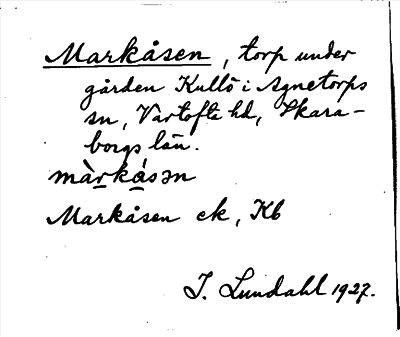 Markåsen, torp under
gården Kullö i Agnetorps
sn, Vartofta hd, Skara-
borgs län.
màrkásən
Markåsen ek, Kb
I. Lundahl 1927.